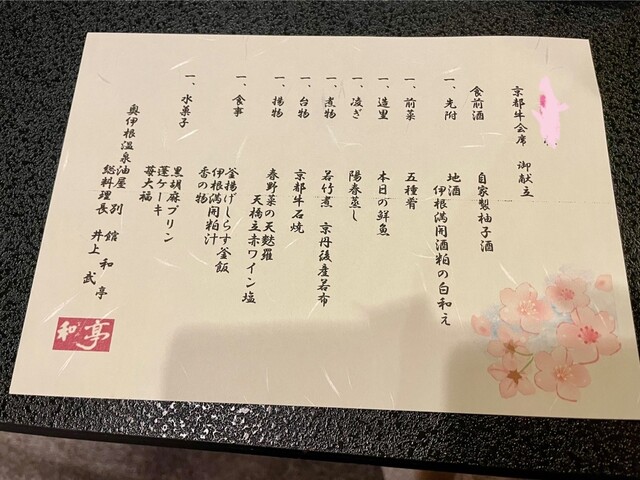 京都牛会席 御献立
食前酒 自家製柚子酒
一、先附 地酒 伊根満開酒粕の白和え
一、前菜 五種肴
一、造里 本日の鮮魚
一、凌ぎ 陽春蒸し
一、煮物 若竹煮 京丹後産若布
一、台物 京都牛石焼
一、揚物 春野菜の天麩羅
天橋立赤ワイン塩
一、食事 釜揚げしらす釜飯
伊根満開粕汁
香の物
一、水菓子 黒胡麻プリン
蓬ケーキ
苺大福
奥伊根温泉油屋 別館 和亭
総料理長 井上 武
和亭